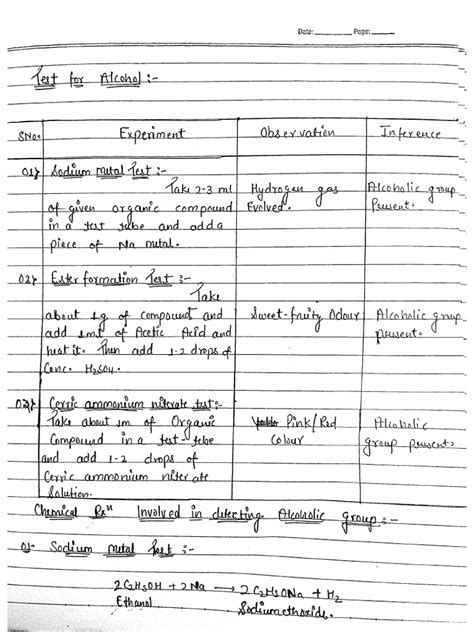 Date: Page:
Test for Alcohol :-
SNo. Experiment Observation Inference
01) Sodium Metal Test :-
Take 2-3 ml Hydrogen gas Alcoholic group
of given organic compound Evolved. Present.
in a test tube and add a
piece of Na metal.
02) Ester formation Test :-
Take
about 1g of compound and Sweet-fruity Odour Alcoholic group
add 1ml of Acetic Acid and present.
heat it. Then add 1-2 drops of
Conc. H2SO4.
03) Cerric ammonium niterate test:-
Take about 1m of Organic Pink/Red Alcoholic
Compound in a test-tube Colour group present.
and add 1-2 drops of
Cerric ammonium niterate
Solution.
Chemical Rxn Involved in detecting Alcoholic group :-
01- Sodium Metal Test :-
2C2H5OH + 2Na → 2C2H5ONa + H2
Ethanol Sodium ethoxide.